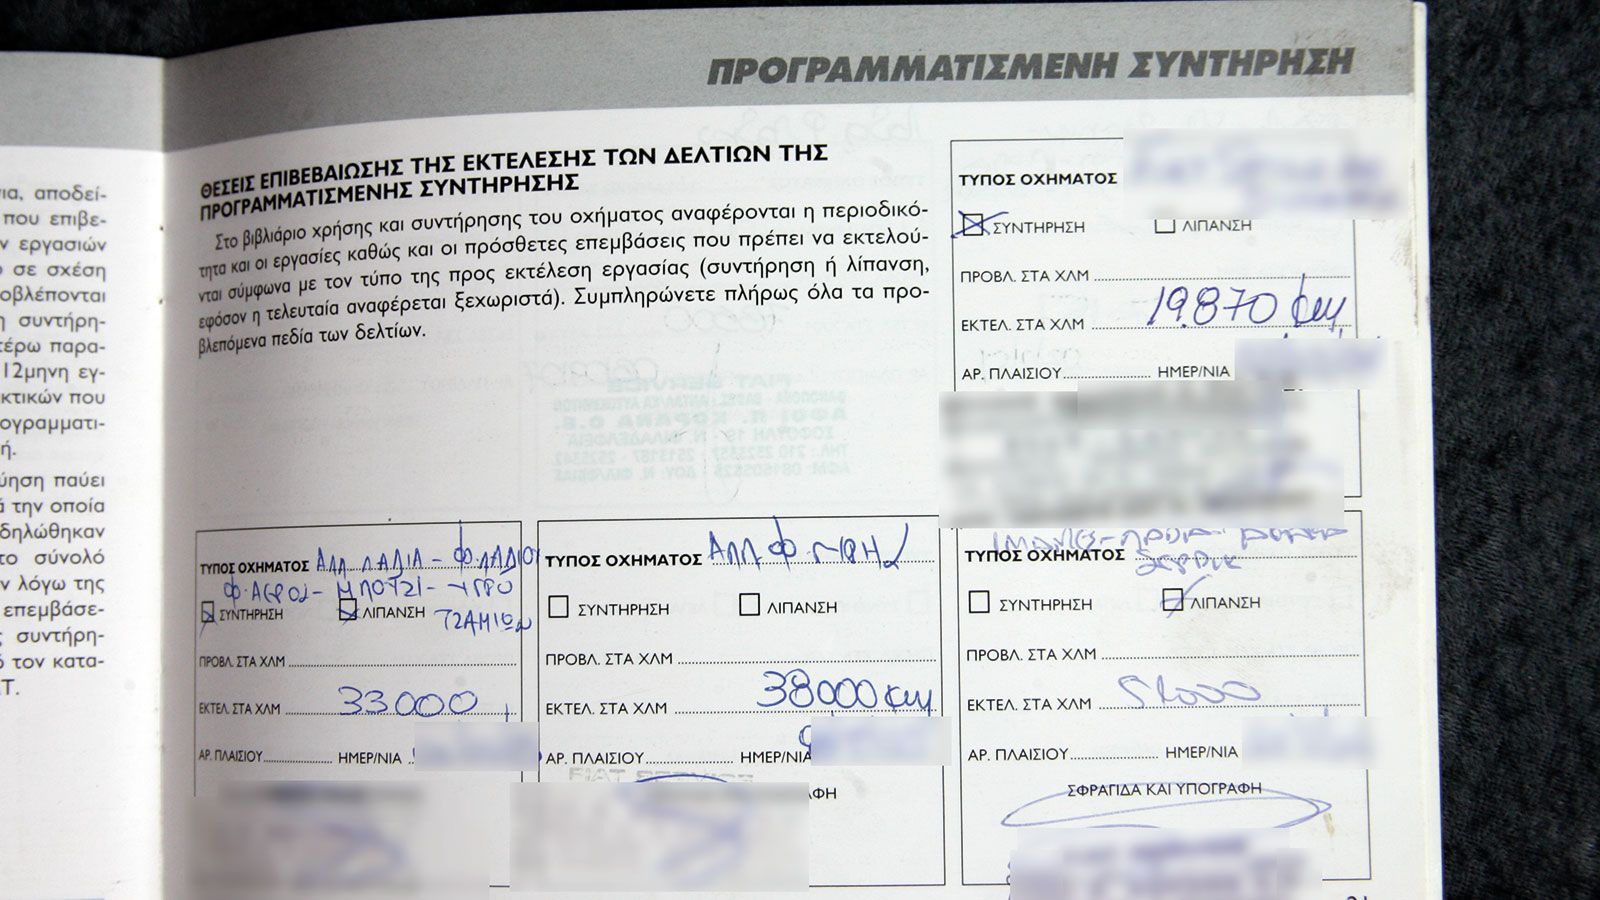 ΠΡΟΓΡΑΜΜΑΤΙΣΜΕΝΗ ΣΥΝΤΗΡΗΣΗ
ια, αποδεί-
που επιβε-
ν εργασιών
σε σχέση
οβλέπονται
η συντήρη-
τέρω παρα-
12μηνη εγ-
κτικών που
ρογραμματι-
ή.
ύηση παύει
ά την οποία
δηλώθηκαν
το σύνολο
ν λόγω της
επεμβάσε-
ς συντήρη-
ό τον κατα-
Τ.
ΘΕΣΕΙΣ ΕΠΙΒΕΒΑΙΩΣΗΣ ΤΗΣ ΕΚΤΕΛΕΣΗΣ ΤΩΝ ΔΕΛΤΙΩΝ ΤΗΣ
ΠΡΟΓΡΑΜΜΑΤΙΣΜΕΝΗΣ ΣΥΝΤΗΡΗΣΗΣ
Στο βιβλιάριο χρήσης και συντήρησης του οχήματος αναφέρονται η περιοδικό-
τητα και οι εργασίες καθώς και οι πρόσθετες επεμβάσεις που πρέπει να εκτελού-
νται σύμφωνα με τον τύπο της προς εκτέλεση εργασίας (συντήρηση ή λίπανση,
εφόσον η τελευταία αναφέρεται ξεχωριστά). Συμπληρώνετε πλήρως όλα τα προ-
βλεπόμενα πεδία των δελτίων.
ΤΥΠΟΣ ΟΧΗΜΑΤΟΣ
ΣΥΝΤΗΡΗΣΗ ΛΙΠΑΝΣΗ
ΠΡΟΒΛ. ΣΤΑ ΧΛΜ
ΕΚΤΕΛ. ΣΤΑ ΧΛΜ 19.870 km
ΑΡ. ΠΛΑΙΣΙΟΥ ΗΜΕΡ/ΝΙΑ
ΤΥΠΟΣ ΟΧΗΜΑΤΟΣ ΑΛΛ ΛΑΔΙΑ - Φ.ΛΑΔΙΟΥ
Φ.ΑΕΡΟΣ - ΜΠΟΥΖΙ - ΥΓΡΟ
ΣΥΝΤΗΡΗΣΗ ΛΙΠΑΝΣΗ ΤΖΑΜΙΩΝ
ΠΡΟΒΛ. ΣΤΑ ΧΛΜ
ΕΚΤΕΛ. ΣΤΑ ΧΛΜ 33000
ΑΡ. ΠΛΑΙΣΙΟΥ ΗΜΕΡ/ΝΙΑ
ΤΥΠΟΣ ΟΧΗΜΑΤΟΣ ΑΛΛ Φ.
ΣΥΝΤΗΡΗΣΗ ΛΙΠΑΝΣΗ
ΠΡΟΒΛ. ΣΤΑ ΧΛΜ
ΕΚΤΕΛ. ΣΤΑ ΧΛΜ 38000 km
ΑΡ. ΠΛΑΙΣΙΟΥ ΗΜΕΡ/ΝΙΑ
ΑΦΗ
ΤΥΠΟΣ ΟΧΗΜΑΤΟΣ
ΣΥΝΤΗΡΗΣΗ ΛΙΠΑΝΣΗ
ΠΡΟΒΛ. ΣΤΑ ΧΛΜ
ΕΚΤΕΛ. ΣΤΑ ΧΛΜ 51000
ΑΡ. ΠΛΑΙΣΙΟΥ ΗΜΕΡ/ΝΙΑ
ΣΦΡΑΓΙΔΑ ΚΑΙ ΥΠΟΓΡΑΦΗ